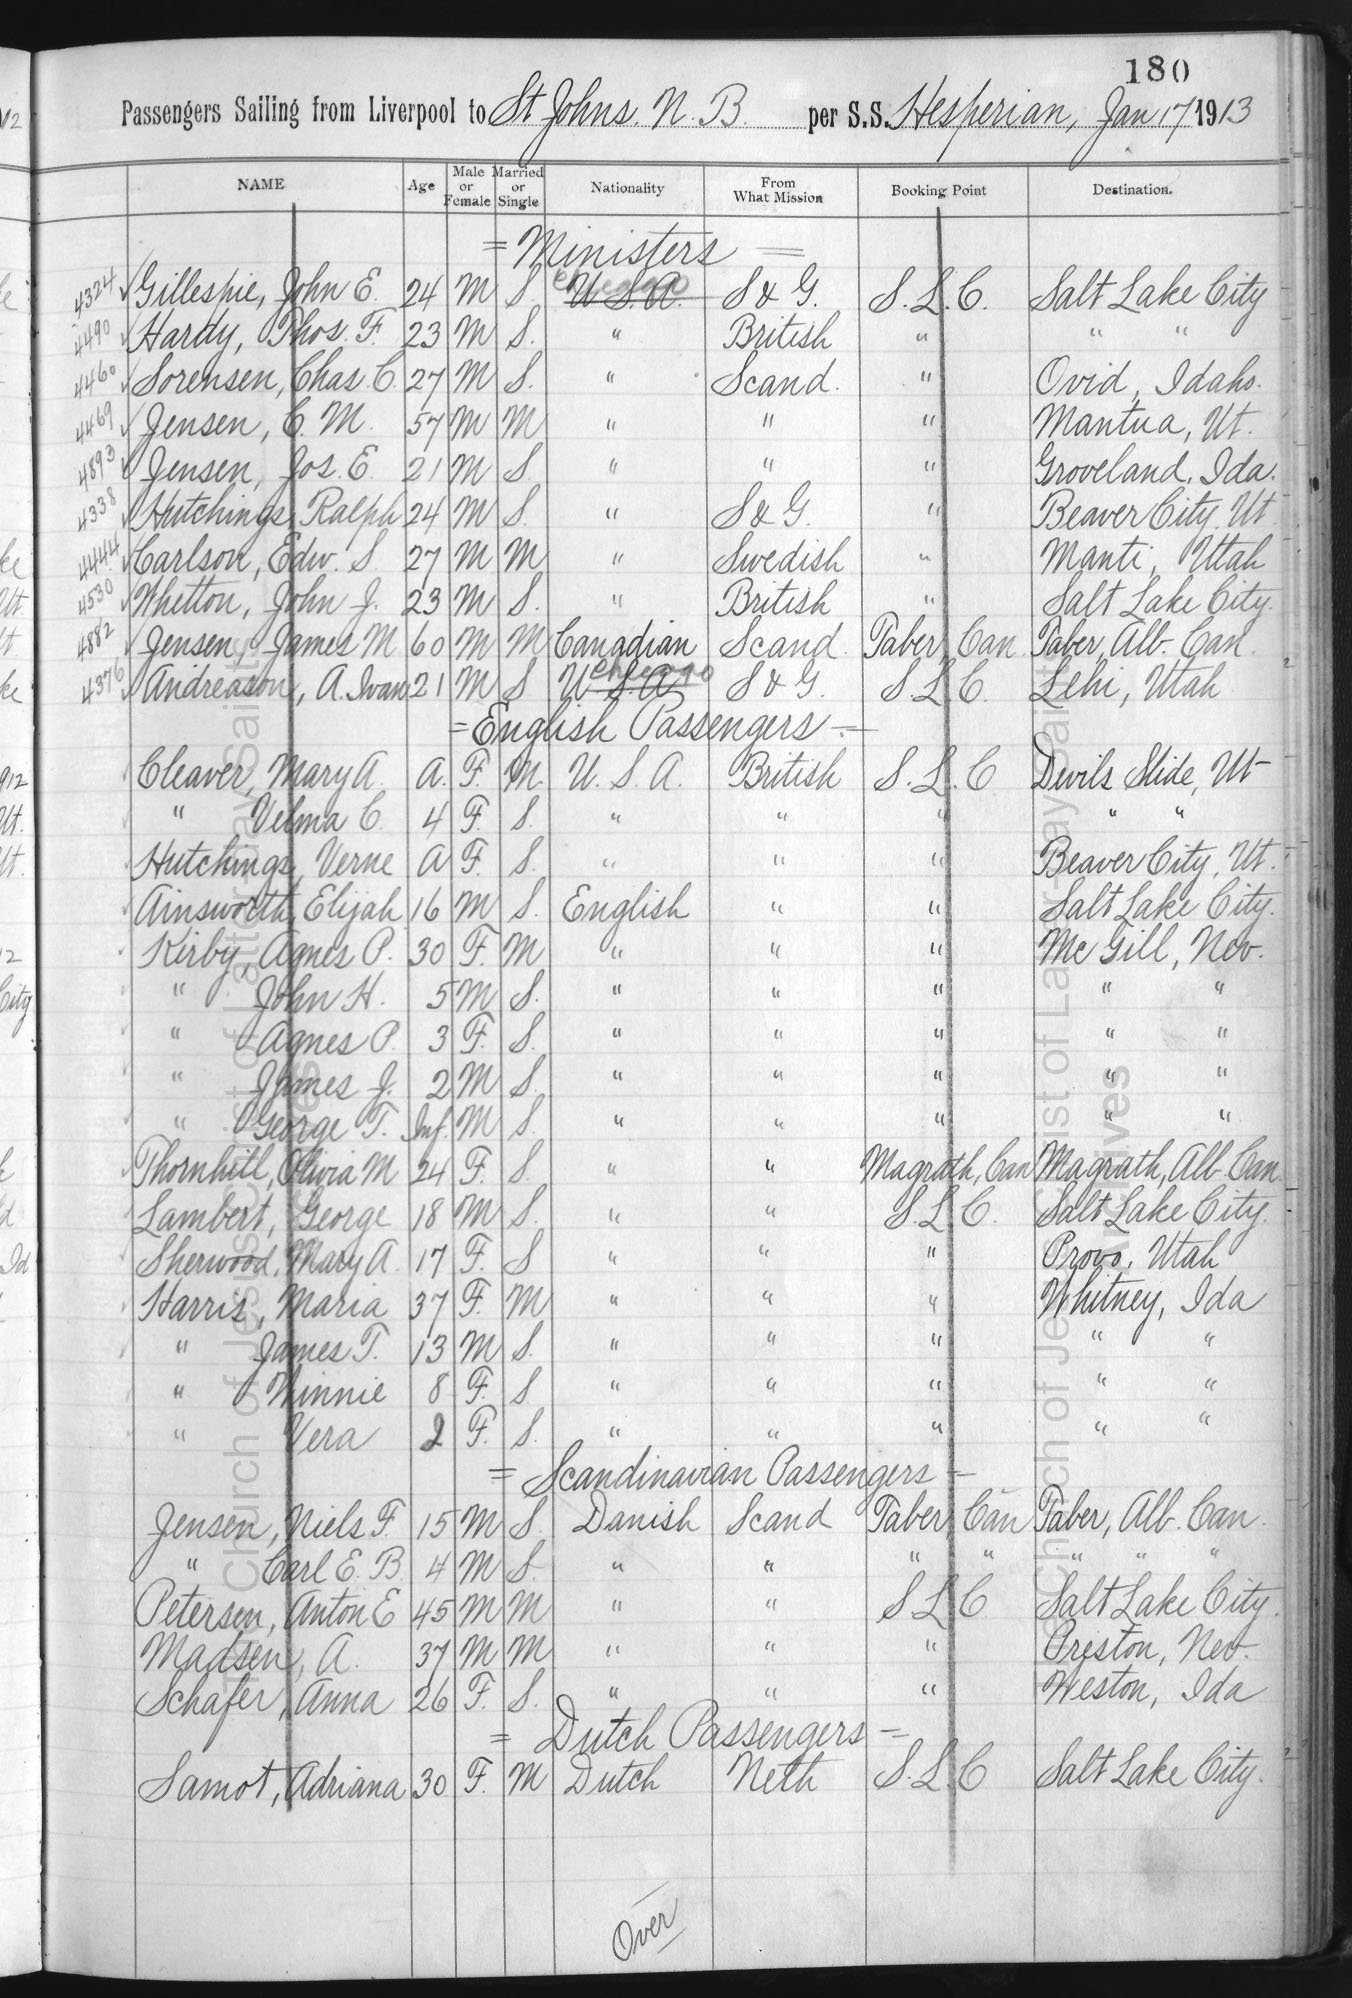 180
Passengers Sailing from Liverpool to St Johns. N. B. per S.S. Hesperian, Jan 17 1913
NAME Age Male or Female Married or Single Nationality From What Mission Booking Point Destination.
= Ministers =
4324 Gillespie, John E. 24 M S. U. S. A. Chicago S & G. S. L. C. Salt Lake City
4490 Hardy, Thos. F. 23 M S. " British " " "
4460 Sorensen, Chas. C. 27 M S. " Scand. " Ovid, Idaho.
4469 Jensen, C. M. 57 M M " " " Mantua, Ut.
4893 Jensen, Jos. E. 21 M S. " " " Groveland, Ida.
4338 Hutchings, Ralph 24 M S. " S & G. " Beaver City, Ut
4444 Carlson, Edw. S. 27 M M " Swedish " Manti, Utah
4530 Whetton, John J. 23 M S. " British " Salt Lake City.
4882 Jensen, James M 60 M M Canadian Scand. Taber, Can. Taber, Alb. Can.
4376 Andreason, A. Ivan 21 M S U S. A. Chicago S & G. S. L. C. Lehi, Utah
= English Passengers =
Cleaver, Mary A. A. F. M. U. S. A. British S. L. C Devils Slide, Ut
" Velma C. 4 F. S. " " " " "
Hutchings, Verne A F. S. " " " Beaver City, Ut.
Ainsworth, Elijah 16 M S. English " " Salt Lake City.
Kirby, Agnes P. 30 F. M " " " Mc Gill, Nev.
" John H. 5 M S. " " " " "
" Agnes P. 3 F. S. " " " " "
" James J. 2 M S. " " " " "
" George T. Inf. M S. " " " " "
Thornhill, Olivia M 24 F. S. " " Magrath, Can Magrath, Alb. Can.
Lambert, George 18 M S. " " S. L. C. Salt Lake City.
Sherwood, Mary A. 17 F. S " " " Provo, Utah
Harris, Maria 37 F. M " " " Whitney, Ida
" James T. 13 M S. " " " " "
" Winnie 8 F. S " " " " "
" Vera 2 F. S. " " " " "
= Scandinavian Passengers =
Jensen, Niels F. 15 M S. Danish Scand Taber, Can Taber, Alb. Can.
" Carl E. B. 4 M S. " " " " " " "
Petersen, Anton E 45 M M " " S L C Salt Lake City.
Madsen, A. 37 M M " " " Preston, Nev.
Schafer, Anna 26 F. S. " " " Weston, Ida
= Dutch Passengers =
Samot, Adriana 30 F. M Dutch Neth S. L. C Salt Lake City.
Over